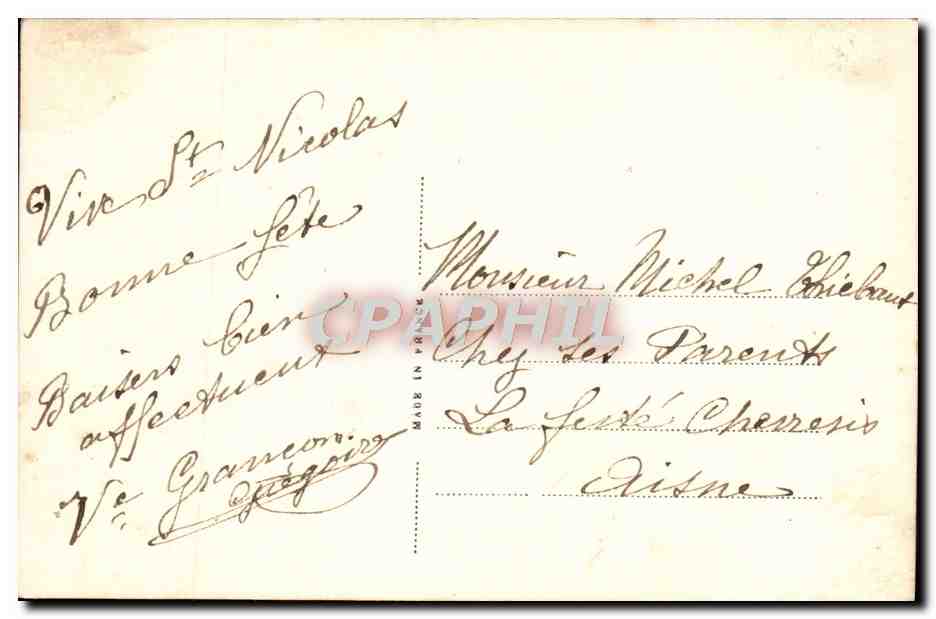 Vive St Nicolas
Bonne fête
Baisers bien
affectueut
Ve Grancon
Grégoire
MADE IN FRANCE
CPAPHIL
Monsieur Michel Thiebaut
Chez ses Parents
La ferté Cherresis
Aisne